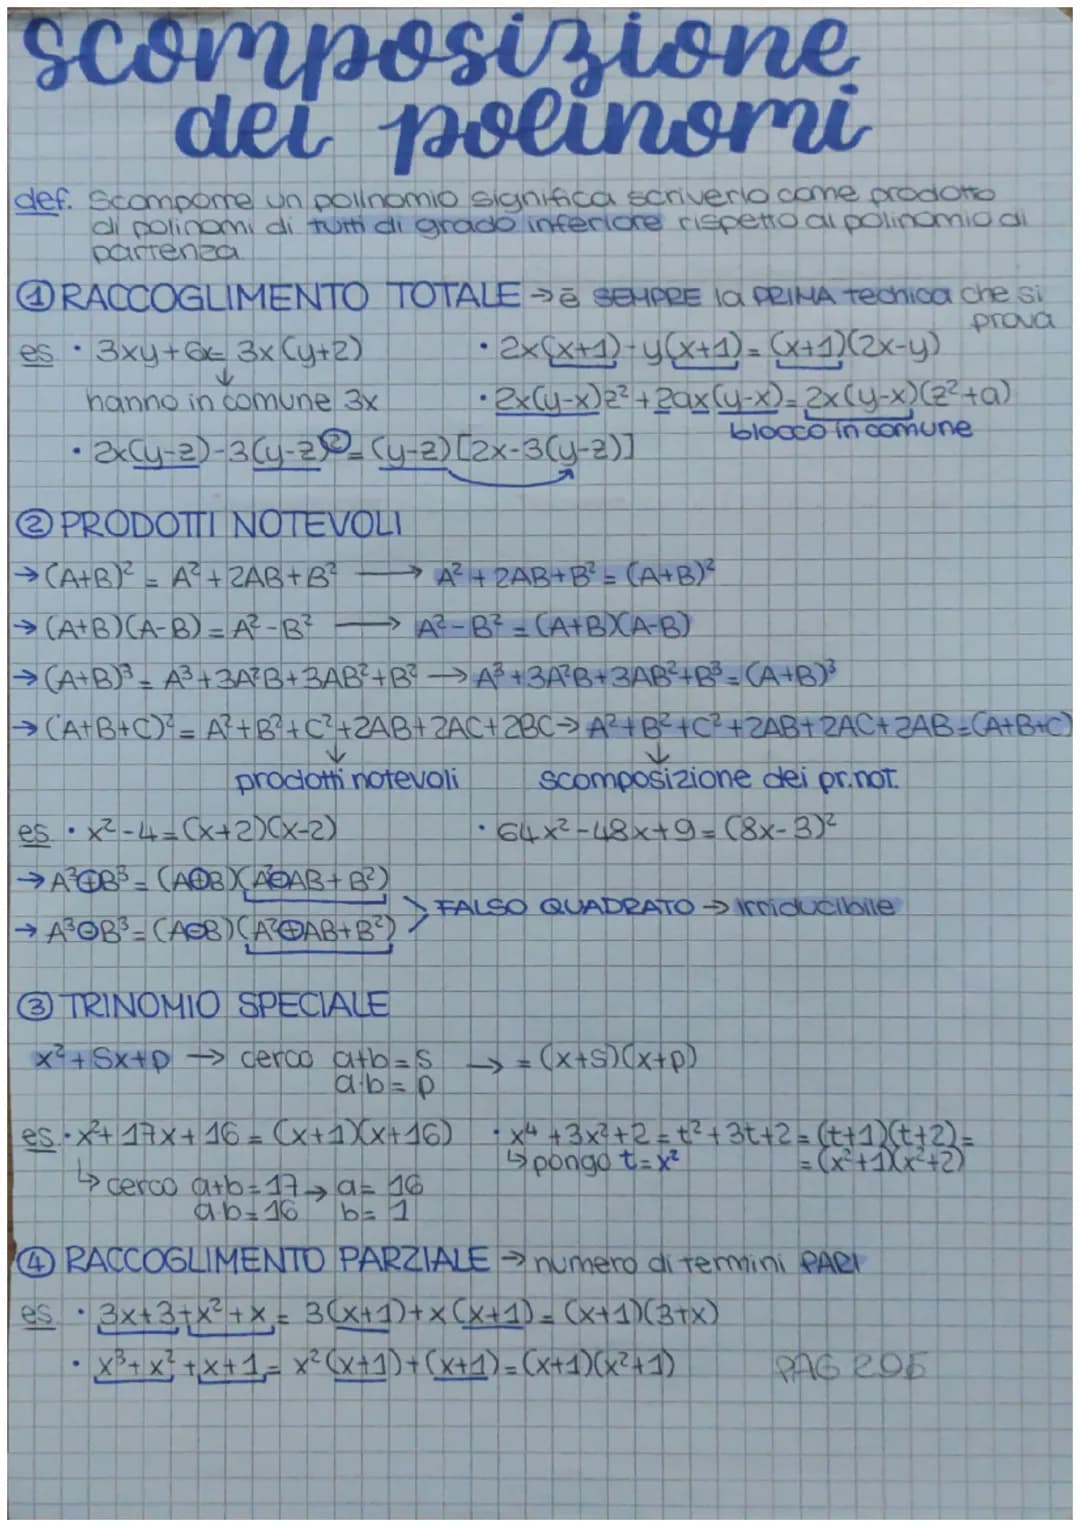 scomposizione
dei polinomi
def. Scomporre un polinomio significa scriverlo come prodotto
di polinomi di tutti di grado inferiore rispetto al polinomio di
partenza
① RACCOGLIMENTO TOTALE → è SEMPRE la PRIMA technica che si
prova
es • 3xy+6x= 3x(y+2) • 2x(x+1)-y(x+1)= (x+1)(2x-y)
↓
hanno in comune 3x • 2x(y-x)z²+2ax(y-x)= 2x(y-x)(z²+a)
blocco in comune
• 2x(y-z)-3(y-z)²=(y-z)[2x-3(y-z)]
② PRODOTTI NOTEVOLI
→ (A+B)² = A²+2AB+B² → A²+2AB+B²=(A+B)²
→ (A+B)(A-B)=A²-B² → A²-B²=(A+B)(A-B)
→ (A+B)³= A³+3A²B+3AB²+B³ → A³+3A²B+3AB²+B³=(A+B)³
→ (A+B+C)²= A²+B²+C²+2AB+2AC+2BC → A²+B²+C²+2AB+2AC+2AB=(A+B+C)
↓ ↓
prodotti notevoli scomposizione dei pr.not.
es • x²-4=(x+2)(x-2) • 64x²-48x+9=(8x-3)²
→ A³⊕B³=(A⊕B)(A²⊖AB+B²)
> FALSO QUADRATO → irriducibile
→ A³⊖B³=(A⊖B)(A²⊕AB+B²)
③ TRINOMIO SPECIALE
x²+Sx+p → cerco a+b=s → =(x+s)(x+p)
a·b=p
es.• x²+17x+16=(x+1)(x+16) • x⁴+3x²+2=t²+3t+2=(t+1)(t+2)=
↳ pongo t=x² =(x²+1)(x²+2)
↳ cerco a+b=17 → a= 16
a·b=16 b= 1
④ RACCOGLIMENTO PARZIALE → numero di termini PARI
es • 3x+3+x²+x= 3(x+1)+x(x+1)=(x+1)(3+x)
• x³+x²+x+1= x²(x+1)+(x+1)=(x+1)(x²+1) PAG 206